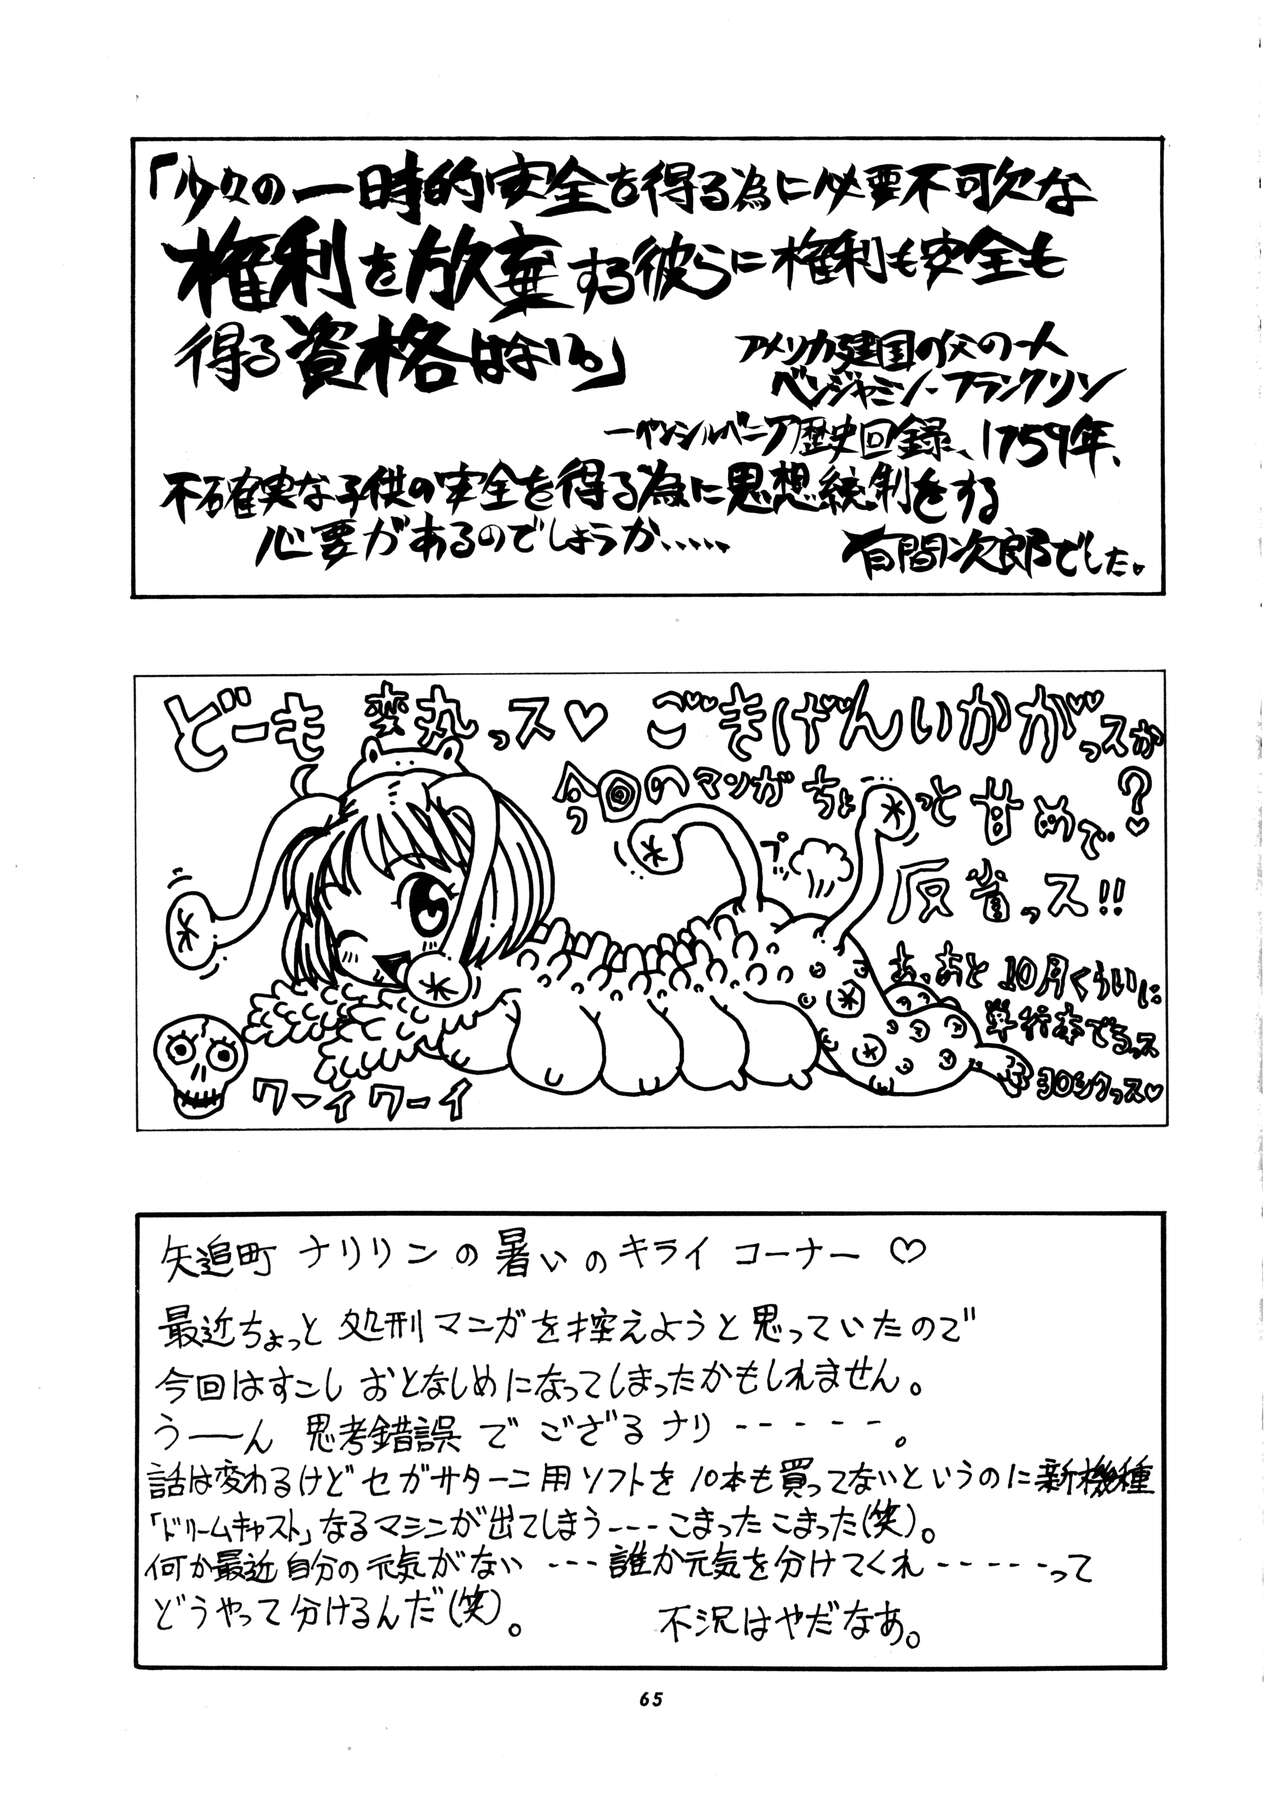 「少々の一時的安全を得る為に必要不可欠な
権利を放棄する彼らに権利も安全も
得る資格はない。」
アメリカ建国の父の一人
ベンジャミン・フランクリン
ーペンシルベニア歴史回録、1759年、
不確実な子供の安全を得る為に思想統制をする
必要があるのでしょうか、、、、、
有間次郎でした。
どーも 変丸っス♡ ごきげんいかがっスか?
今回のマンガちょっと甘めで
反省っス!!
プッ
あ、あと10月くらいに
単行本でるっス
ヨロシクっス♡
ワーイワーイ
矢追町 ナリリンの暑いのキライ コーナー ♡
最近ちょっと処刑マンガを控えようと思っていたので
今回はすこし おとなしめになってしまったかもしれません。
うーーん 思考錯誤で ござるナリ-----。
話は変わるけどセガサターン用ソフトを10本も買ってないというのに新機種
「ドリームキャスト」なるマシンが出てしまう---こまったこまった(笑)。
何か最近自分の元気がない---誰か元気を分けてくれ-----って
どうやって分けるんだ(笑)。 不況はやだなあ。
65